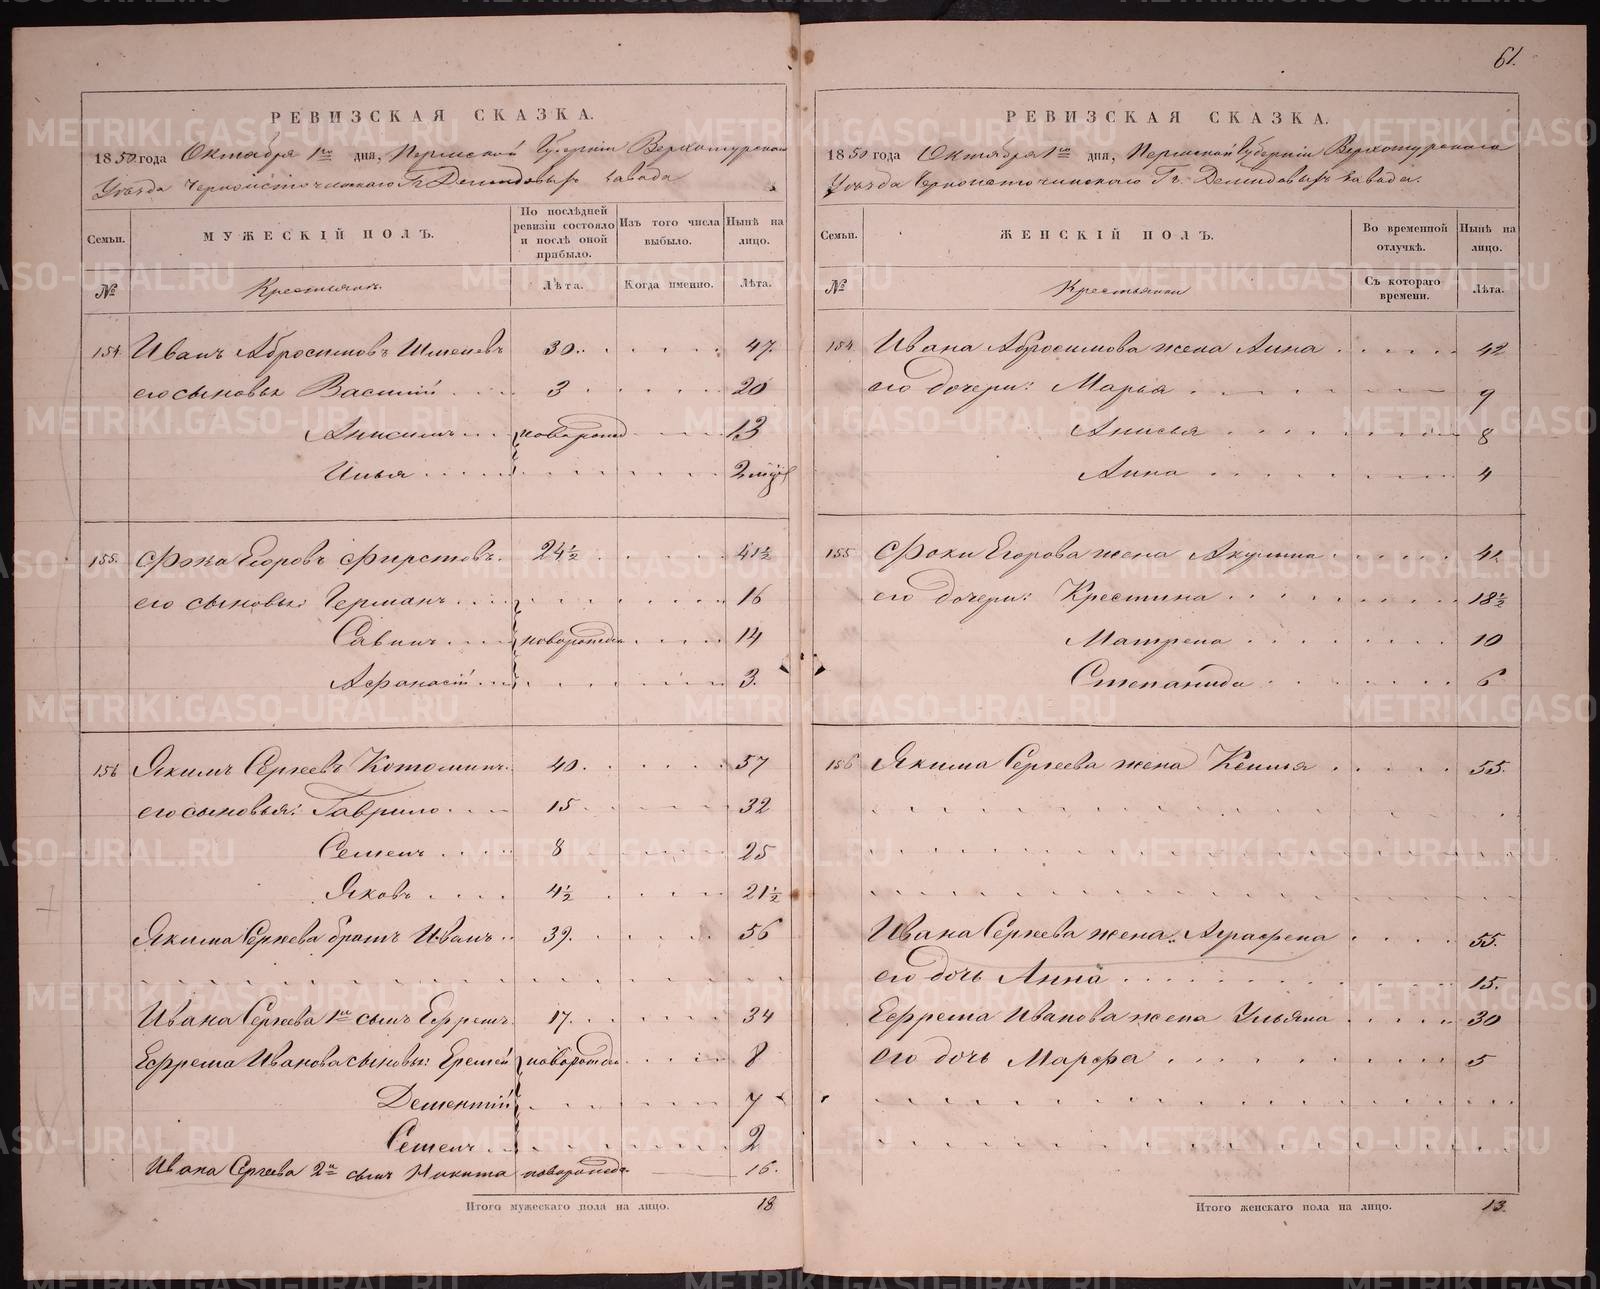 61.
РЕВИЗСКАЯ СКАЗКА.
1850 года Октября 1го дня, Пермской Губерніи Верхотурскаго
Уѣзда Черноисточинскаго Гг. Демидовыхъ завода
Семьи. МУЖЕСКІЙ ПОЛЪ. По послѣдней ревизіи состояло и послѣ оной прибыло. Изъ того числа выбыло. Нынѣ на лицо.
№ Крестьяне Лѣта. Когда именно. Лѣта.
154 Иванъ Абросимовъ 30. 47.
его сыновья Василій 3 20
Анисимъ новорожд 13
Илья 2
155. Фока Егоровъ Фирстовъ. 24½ 41½
его сыновья: Германъ 16
Савинъ новорожден 14
Афонасій 3.
156 Якимъ Сергѣевъ Котоминъ. 40. 57
его сыновья: Гаврило 15 32
Семенъ 8 25
Яковъ 4½ 21½
Якима Сергѣева братъ Иванъ 39. 56
Ивана Сергѣева 1й сынъ Ефремъ 17. 34
Ефрема Иванова сыновья: Еремей новорожден 8
Дементій 7
Семенъ 2
Ивана Сергѣева 2й сынъ Никита новорожден 16.
Итого мужескаго пола на лицо. 18
РЕВИЗСКАЯ СКАЗКА.
1850 года Октября 1го дня, Пермской Губерніи Верхотурскаго
Уѣзда Черноисточинскаго Гг. Демидовыхъ завода.
Семьи. ЖЕНСКІЙ ПОЛЪ. Во временной отлучкѣ. Нынѣ на лицо.
№ Крестьянки Съ котораго времени. Лѣта.
154 Ивана Абросимова жена Анна 42
его дочери: Марья 9
Анисья 8
Анна 4
155 Фоки Егорова жена Акулина 41.
его дочери: Крестина 18½
Матрена 10
Степанида 6
156 Якима Сергѣева жена Ксенья 55.
Ивана Сергѣева жена Аграфена 55.
его дочь Анна 15.
Ефрема Иванова жена Ульяна 30
его дочь Марфа 5
Итого женскаго пола на лицо. 13.
METRIKI.GASO-URAL.RU